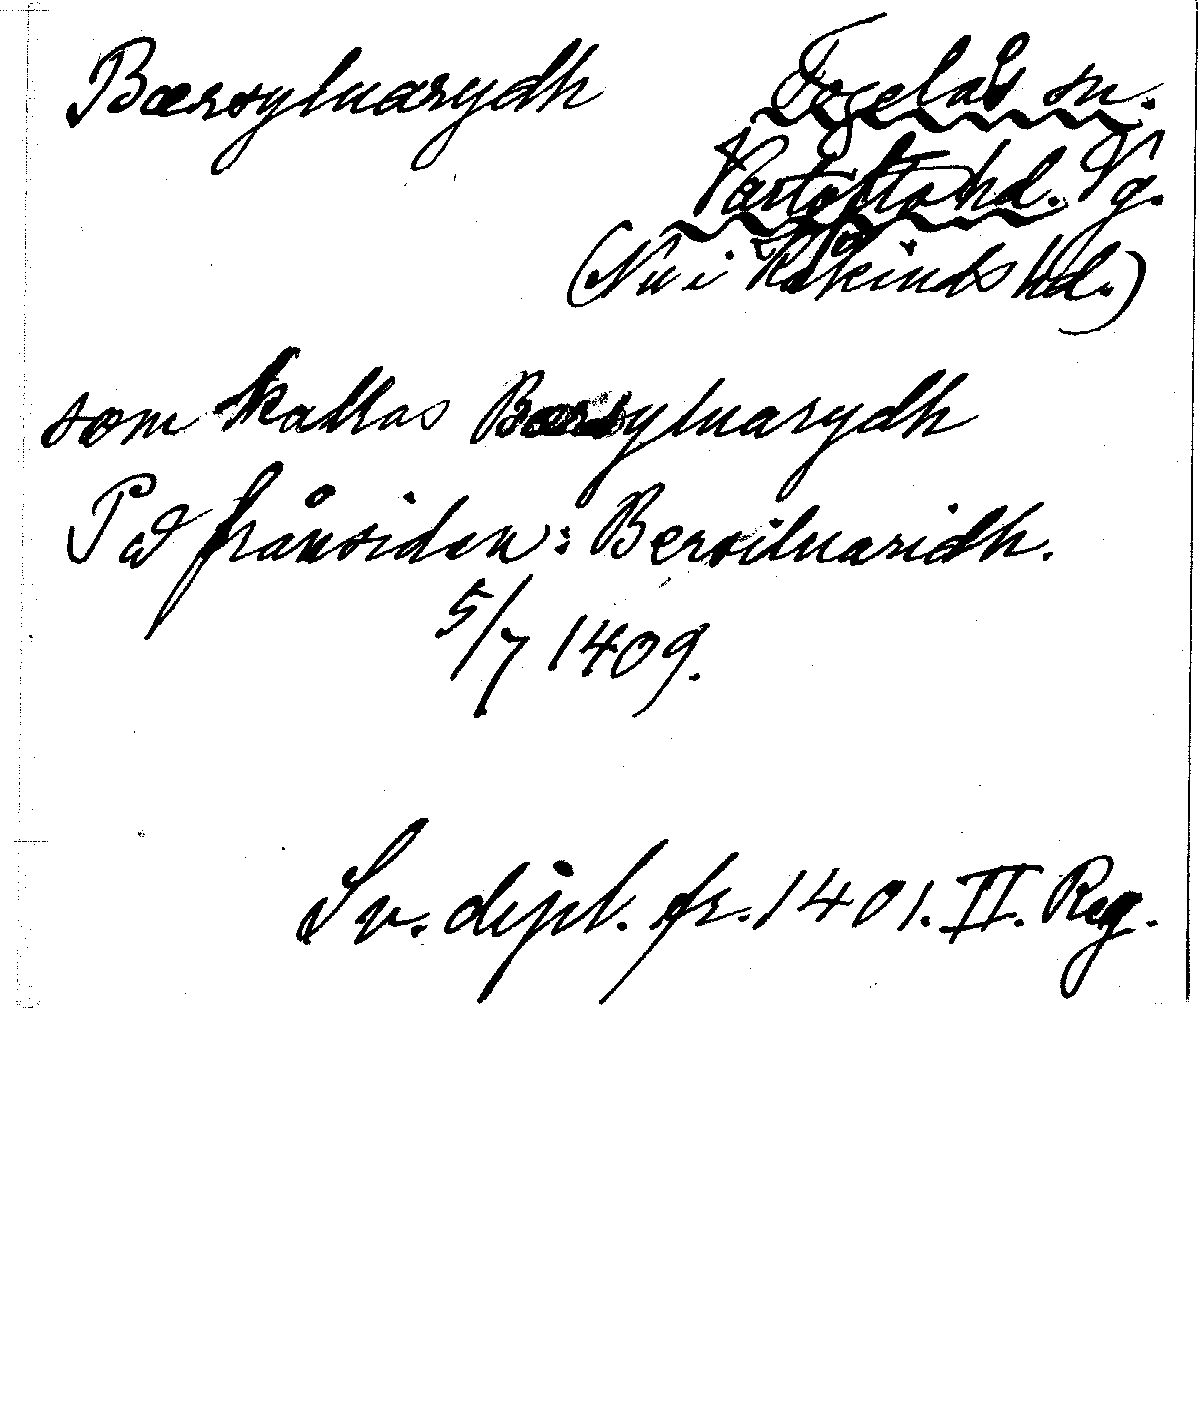 Bærsyluarydh
Fogelås sn.
Vartofta hd. Vg.
(Nu i Kåkinds hd.)
som kallas Bærsyluarydh
På frånsidan: Bersiluaridh.
5/7 1409.
Sv. dipl. fr. 1401. II. Reg.